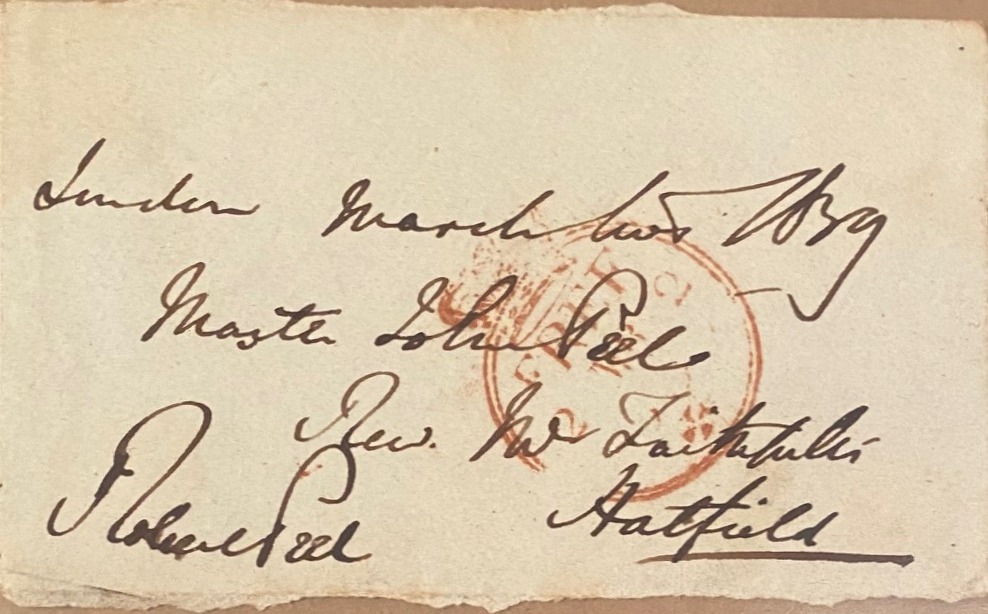 London March two 1839
Master John Peel
Rev. Mr Faithfull's
Robert Peel
Hatfield